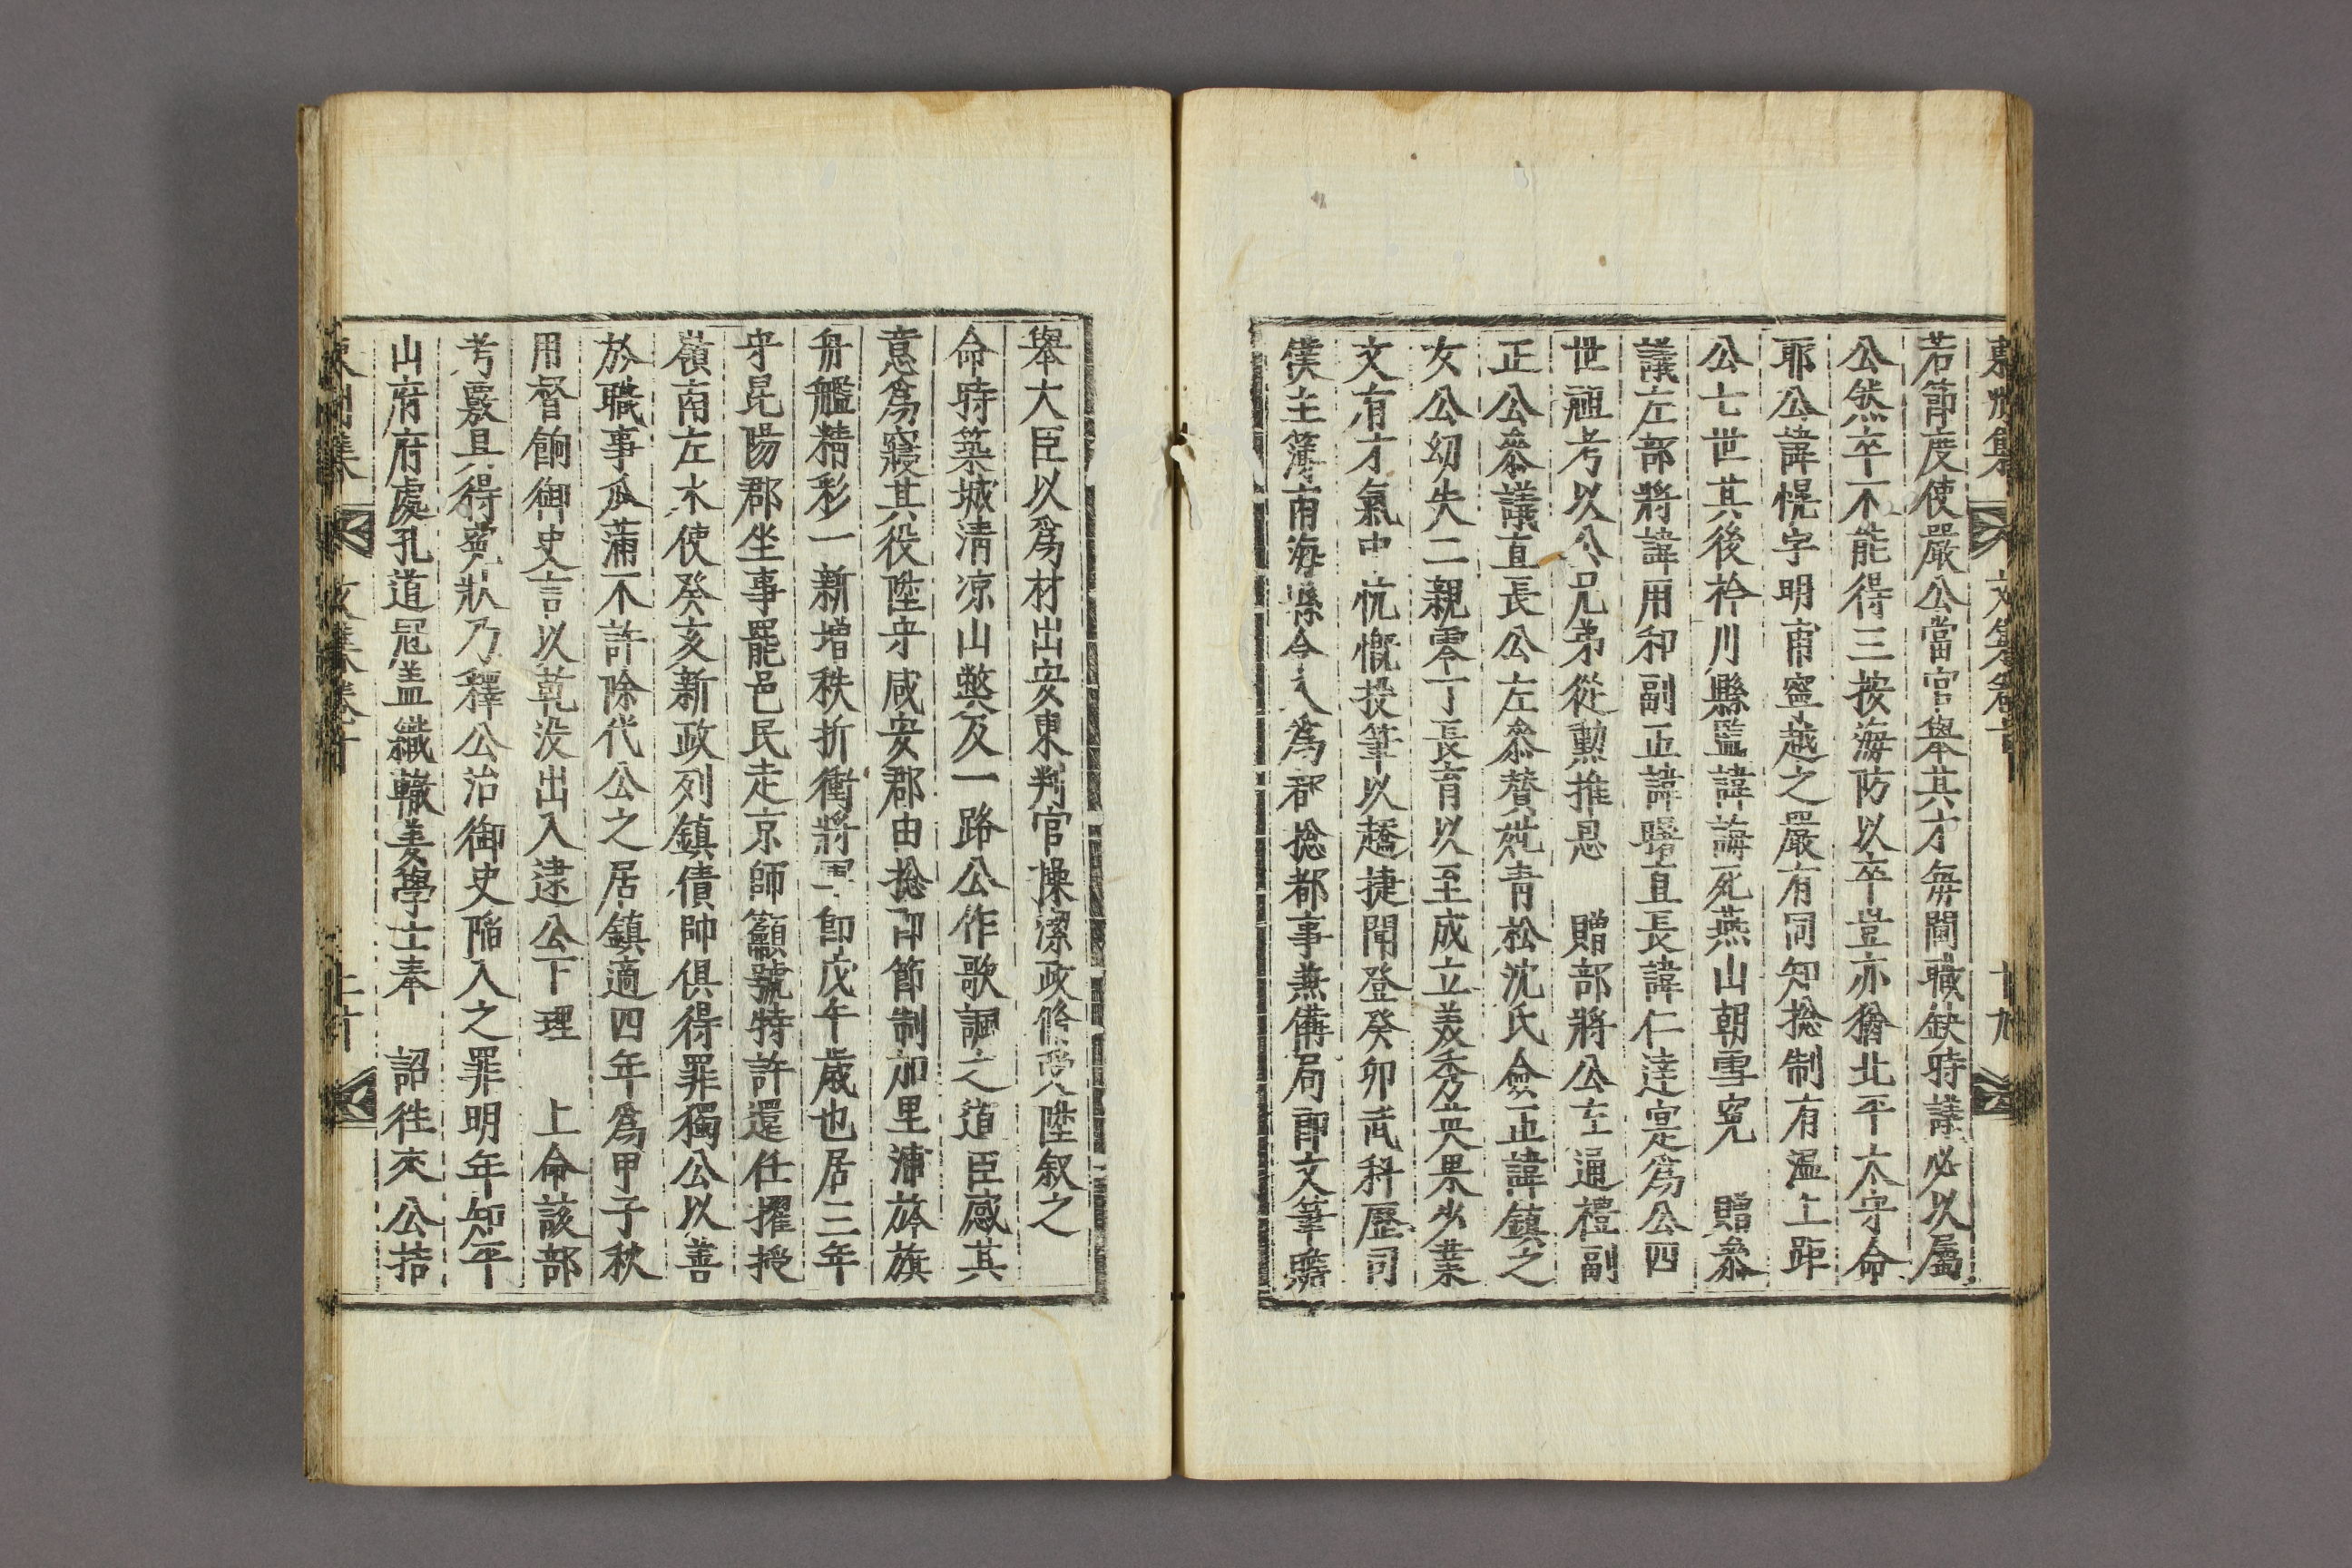 東州集 文集卷十 十九
若節度使嚴公當官擧其才每閫職缺時議必以屬
公然卒不能得三按海防以卒豈亦猶北平太守命
耶公諱愰字明甫寧越之嚴有同知摠制有溫上距
公七世其後衿川縣監諱誨死燕山朝雪寃 贈參
議左部將諱用和副正諱曙直長諱仁達寔爲公四
世祖考以公兄弟從勳推恩 贈部將公左通禮副
正公參議直長公左參贊妣靑松沈氏僉正諱鎭之
女公幼失二親零丁長育以至成立美秀英果少業
文有才氣中忼慨投筆以趫捷聞登癸卯武科歷司
僕主簿南海縣令入爲都摠都事兼備局郞文筆贍
擧大臣以爲材出安東判官操潔政修受陞叙之
命時築城淸凉山獘及一路公作歌諷之道臣感其
意爲寢其役陞守咸安郡由摠卽節制加里浦於旗
舟艦精彩一新增秩折衝將軍卽戊午歲也居三年
守昆陽郡坐事罷邑民走京師籲號特許還任擢授
嶺南左水使癸亥新政列鎭債帥俱得罪獨公以善
於職事瓜滿不許除代公之居鎭適四年爲甲子秋
用督餉御史言以乾沒出入逮公下理 上命該部
考覈具得寃狀乃釋公治御史陷入之罪明年知平
山府府處孔道冠盖織轍姜學士奉 詔徃來公拮
東州集 文集卷十